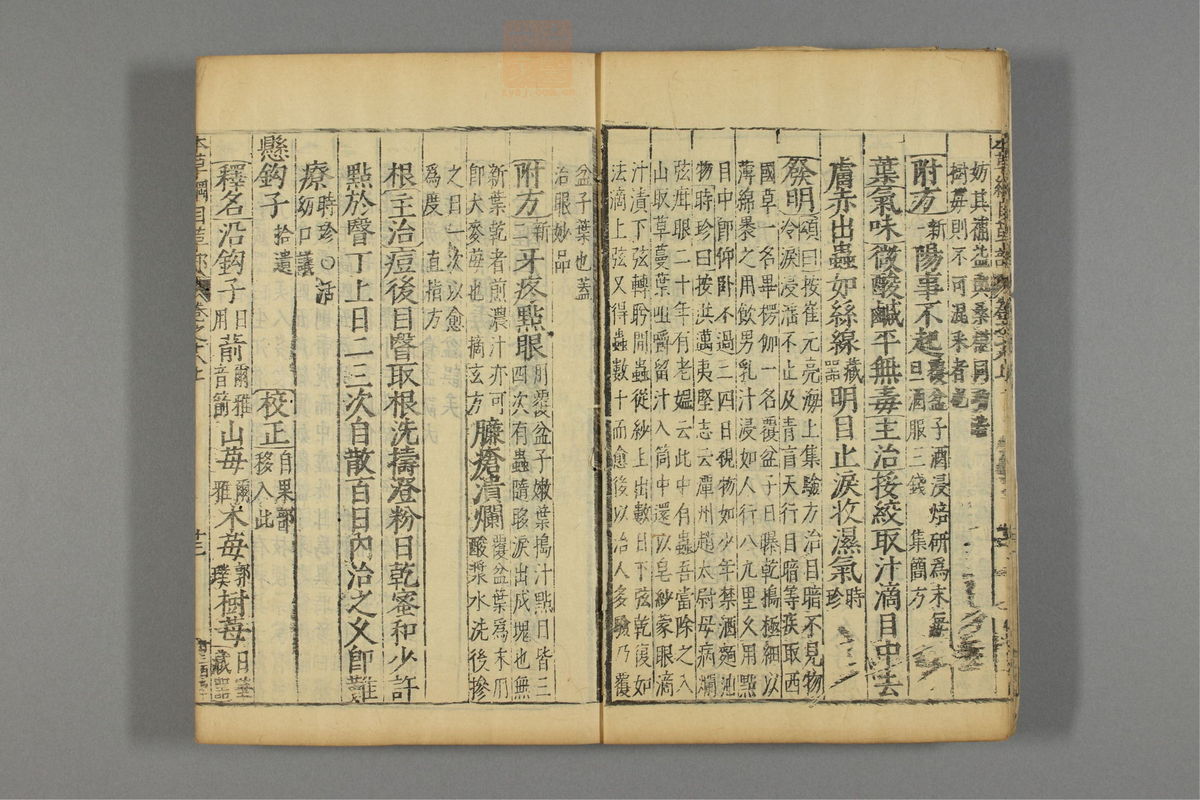 妨其補益與桑椹同功若
樹莓則不可混采者也
附方新一陽事不起覆盆子酒浸焙研為末每
旦酒服三錢 集簡方
葉氣味微酸鹹平無毒主治挼絞取汁滴目中去
膚赤出蟲如絲線藏器明目止淚收濕氣時珍
發明頌曰按崔元亮海上集驗方治目暗不見物
冷淚浸淫不止及青盲天行目暗等疾取西
國草一名畢楞伽一名覆盆子日曝乾搗極細以
薄綿裹之用飲男乳汁浸如人行八九里久用點
目中即仰臥不過三四日視物如少年禁酒麪油
物時珍曰按洪邁夷堅志云潭州趙太尉母病爛
弦疳眼二十年有老嫗云此中有蟲吾當除之入
山取草蔓葉咀嚼留汁入筒中還以皂紗蒙眼滴
汁漬下弦轉盼間蟲從紗上出數日下弦乾復如
法滴上弦又得蟲數十而愈後以治人多驗乃覆
盆子葉也蓋
治眼妙品
附方新二牙疼點眼用覆盆子嫩葉搗汁點目眥三
四次有蟲隨眵淚出成塊也無
新葉乾者煎濃汁亦可
即大麥莓也 摘玄方 臁瘡潰爛覆盆葉為末用
酸漿水洗後摻
之日一次以愈
為度 直指方
根主治痘後目翳取根洗擣澄粉日乾蜜和少許
點於翳丁上日二三次自散百日內治之久即難
療時珍○活幼口議
懸鉤子拾遺 校正自果部移入此
釋名沿鉤子日用 爾雅音箭山莓爾雅木莓郭璞樹莓日華